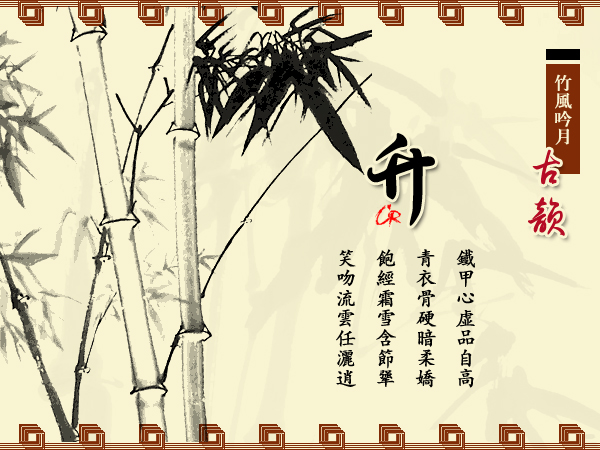 竹風吟月
古韻
升
CR
鐵甲心虛品自高
青衣骨硬暗柔嬌
飽經霜雪含節犖
笑吻流雲任灑逍